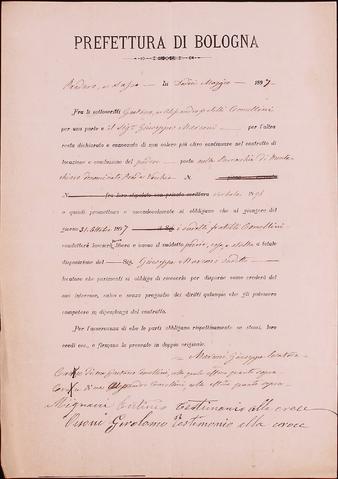 PREFETTURA DI BOLOGNA
Maggio 1897
Fra li sottoscritti Gaetano, ed Alessandro fratelli Comellini
per una parte e il Sig. Giuseppe Marconi per l'altra
resta dichiarato e convenuto di non volere più oltre continuare nel contratto di
locazione e conduzione del podere posto nella Parrocchia di
denominato N.
N. fra loro stipulato con privata scrittura verbale
e quindi promettono e vicendevolmente si obbligano che al giungere del
giorno 31 Ottobre 1897 i suddetti fratelli Comellini
conduttori lascierà libero e vacuo il suddetto podere, casa, e stalla a totale
disposizione del Sig. Giuseppe Marconi sudetto
locatore che parimenti si obbliga di riceverlo per disporne come crederà del
suo interesse, salvo e senza pregiudizio dei diritti qualunque che gli potessero
competere in dipendenza del contratto.
Per l'osservanza di che le parti obbligano rispettivamente se stessi, loro
eredi ecc., e firmano la presente in doppio originale.
Marconi Giuseppe locatore
Croce di me Gaetano Comellini, alla quale affermo quanto sopra
Croce di me Alessandro Comellini, alla affermo quanto sopra
testimonio alla croce
Girolamo testimonio alla croce